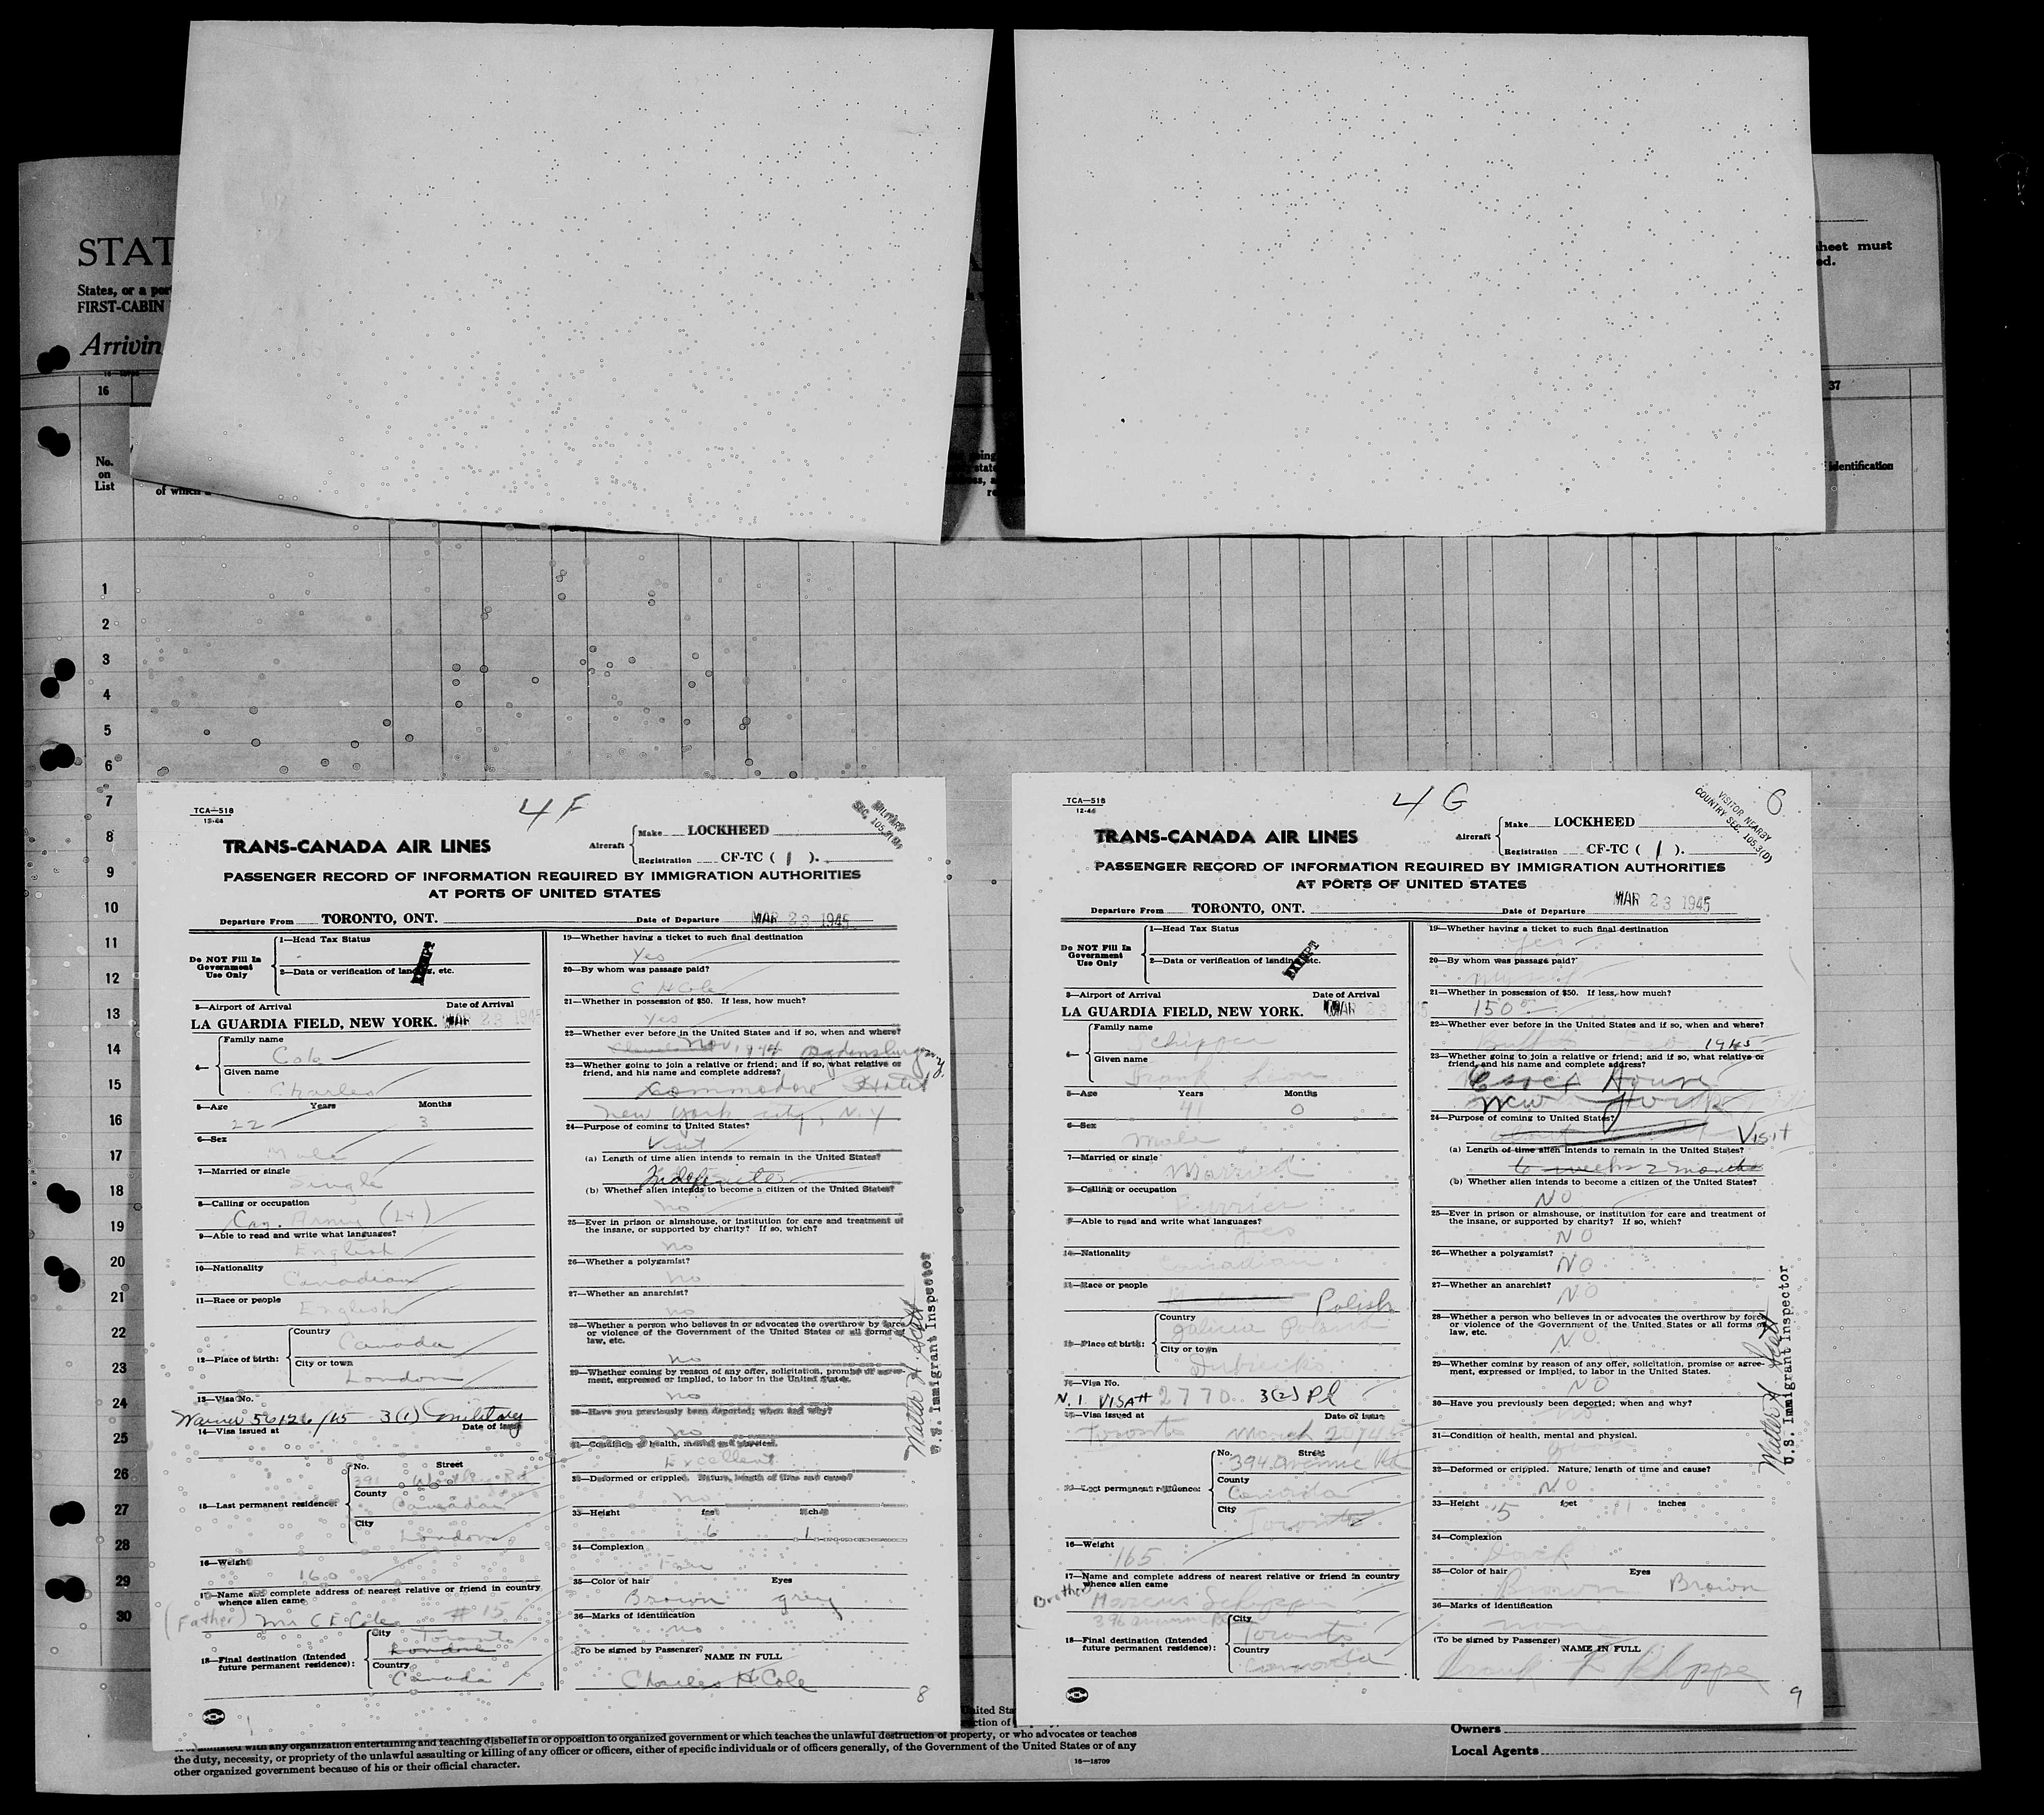 STAT
States, or a por
FIRST-CABIN
Arrivin
16
No.
on
List
of which
heet must
ed.
37
identification
1
2
3
4
5
6
7
8
9
10
11
12
13
14
15
16
17
18
19
20
21
22
23
24
25
26
27
28
29
30
TCA—518
4 F
MILITARY
Make LOCKHEED
TRANS-CANADA AIR LINES
Aircraft
Registration CF-TC ( 1 ).
PASSENGER RECORD OF INFORMATION REQUIRED BY IMMIGRATION AUTHORITIES
AT PORTS OF UNITED STATES
Departure From TORONTO, ONT. Date of Departure MAR 23 1945
Do NOT Fill In
Government
Use Only
1—Head Tax Status
2—Data or verification of landing, etc.
EXEMPT
3—Airport of Arrival Date of Arrival
LA GUARDIA FIELD, NEW YORK. MAR 23 1945
4—
Family name
Cole
Given name
Charles
5—Age Years Months
22 3
6—Sex
Male
7—Married or single
Single
8—Calling or occupation
Can. Army (Lt)
9—Able to read and write what languages?
English
10—Nationality
Canadian
11—Race or people
English
12—Place of birth:
Country
Canada
City or town
London
13—Visa No.
Waiver 56126/15 3(1) military
14—Visa issued at Date of issue
15—Last permanent residence:
No. Street
391
County
Canada
City
London
16—Weight
160
17—Name and complete address of nearest relative or friend in country
whence alien came
(Father) Mr C E Cole #15
18—Final destination (Intended
future permanent residence):
City Toronto
London
Country
Canada
19—Whether having a ticket to such final destination
Yes
20—By whom was passage paid?
C H Cole
21—Whether in possession of $50. If less, how much?
Yes
22—Whether ever before in the United States and if so, when and where?
Cleveland Nov, 1944 Ogdensburg N.Y.
23—Whether going to join a relative or friend; and if so, what relative or
friend, and his name and complete address?
Commodore Hotel
New York city, N.Y
24—Purpose of coming to United States?
Visit
(a) Length of time alien intends to remain in the United States?
Indefinite
(b) Whether alien intends to become a citizen of the United States?
no
25—Ever in prison or almshouse, or institution for care and treatment of
the insane, or supported by charity? If so, which?
no
26—Whether a polygamist?
no
27—Whether an anarchist?
no
28—Whether a person who believes in or advocates the overthrow by force
or violence of the Government of the United States or all forms of
law, etc.
no
29—Whether coming by reason of any offer, solicitation, promise or agree-
ment, expressed or implied, to labor in the United States.
no
30—Have you previously been deported; when and why?
no
31—Condition of health, mental and physical.
Excellent
32—Deformed or crippled. Nature, length of time and cause?
no
33—Height feet inches
6 1
34—Complexion
Fair
35—Color of hair Eyes
Brown grey
36—Marks of identification
no
(To be signed by Passenger)
NAME IN FULL
Charles H Cole
8
Walter H. Scott
U.S. Immigrant Inspector
TCA—518
4 G
VISITOR NEARBY
COUNTRY SEC. 105.3(D)
6
Make LOCKHEED
TRANS-CANADA AIR LINES
Aircraft
Registration CF-TC ( 1 ).
PASSENGER RECORD OF INFORMATION REQUIRED BY IMMIGRATION AUTHORITIES
AT PORTS OF UNITED STATES
Departure From TORONTO, ONT. Date of Departure MAR 23 1945
Do NOT Fill In
Government
Use Only
1—Head Tax Status
2—Data or verification of landing, etc.
EXEMPT
3—Airport of Arrival Date of Arrival
LA GUARDIA FIELD, NEW YORK. MAR 23 1945
4—
Family name
Schipper
Given name
Frank Leon
5—Age Years Months
41 0
6—Sex
Male
7—Married or single
Married
8—Calling or occupation
Furrier
9—Able to read and write what languages?
Yes
10—Nationality
Canadian
11—Race or people
Polish
12—Place of birth:
Country
Galicia Poland
City or town
Dubiecko
13—Visa No.
N.I. VISA# 2770 3(2) Pl
14—Visa issued at Date of issue
Toronto March 20 / 45
15—Last permanent residence:
No. Street
394 Avenue Rd
County
Canada
City
Toronto
16—Weight
165
17—Name and complete address of nearest relative or friend in country
whence alien came
Brother Marcus Schipper
396 Avenue Rd
18—Final destination (Intended
future permanent residence):
City
Toronto
Country
Canada
19—Whether having a ticket to such final destination
Yes
20—By whom was passage paid?
Myself
21—Whether in possession of $50. If less, how much?
150
22—Whether ever before in the United States and if so, when and where?
Buffalo Feb 1945
23—Whether going to join a relative or friend; and if so, what relative or
friend, and his name and complete address?
Essex House
New York
24—Purpose of coming to United States?
Visit
(a) Length of time alien intends to remain in the United States?
6 weeks 2 months
(b) Whether alien intends to become a citizen of the United States?
NO
25—Ever in prison or almshouse, or institution for care and treatment of
the insane, or supported by charity? If so, which?
NO
26—Whether a polygamist?
NO
27—Whether an anarchist?
NO
28—Whether a person who believes in or advocates the overthrow by force
or violence of the Government of the United States or all forms of
law, etc.
NO
29—Whether coming by reason of any offer, solicitation, promise or agree-
ment, expressed or implied, to labor in the United States.
NO
30—Have you previously been deported; when and why?
no
31—Condition of health, mental and physical.
good
32—Deformed or crippled. Nature, length of time and cause?
NO
33—Height feet inches
5 1
34—Complexion
Dark
35—Color of hair Eyes
Brown Brown
36—Marks of identification
none
(To be signed by Passenger)
NAME IN FULL
Frank L Schipper
9
Walter H. Scott
U.S. Immigrant Inspector
or affiliated with any organization entertaining and teaching disbelief in or opposition to organized government or which teaches the unlawful destruction of property, or who advocates or teaches
the duty, necessity, or propriety of the unlawful assaulting or killing of any officer or officers, either of specific individuals or of officers generally, of the Government of the United States or of any
other organized government because of his or their official character.
16—18709
Owners
Local Agents